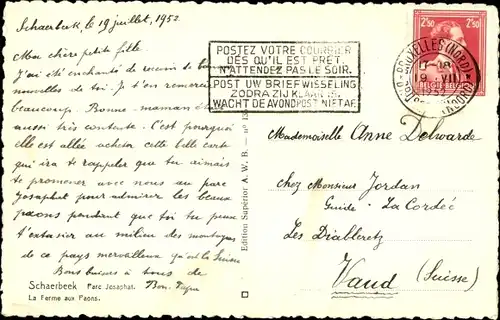 Schaerbeek, le 19 juillet, 1952
Ma chère petite fille,
J'ai été enchanté de recevoir de tes
nouvelles de toi. Je t'en remercie
beaucoup. Bonne-maman était
aussi très contente. C'est pourquoi
elle est allée acheter cette belle carte
qui ira te rappeler que tu aimais
te promener avec nous au parc
Josaphat pour admirer les beaux
paons pendant que toi tu peux
t'extasier au milieu des montagnes
de ce pays merveilleux qu'est la Suisse
Bons baisers à tous de
Bon-Papa
Schaerbeek Parc Josaphat.
La Ferme aux Paons.
Edition Supérior A. W. B. - n° 13
POSTEZ VOTRE COURRIER
DÈS QU'IL EST PRÊT.
N'ATTENDEZ PAS LE SOIR.
POST UW BRIEFWISSELING
ZODRA ZIJ KLAAR IS.
WACHT DE AVONDPOST NIET AF.
2F50 2F50
BRUXELLES (NORD)
19 VII
1952
Mademoiselle Anne Delwarde
chez Monsieur Jordan
Guide - La Cordée
Les Diablerets
Vaud (Suisse)